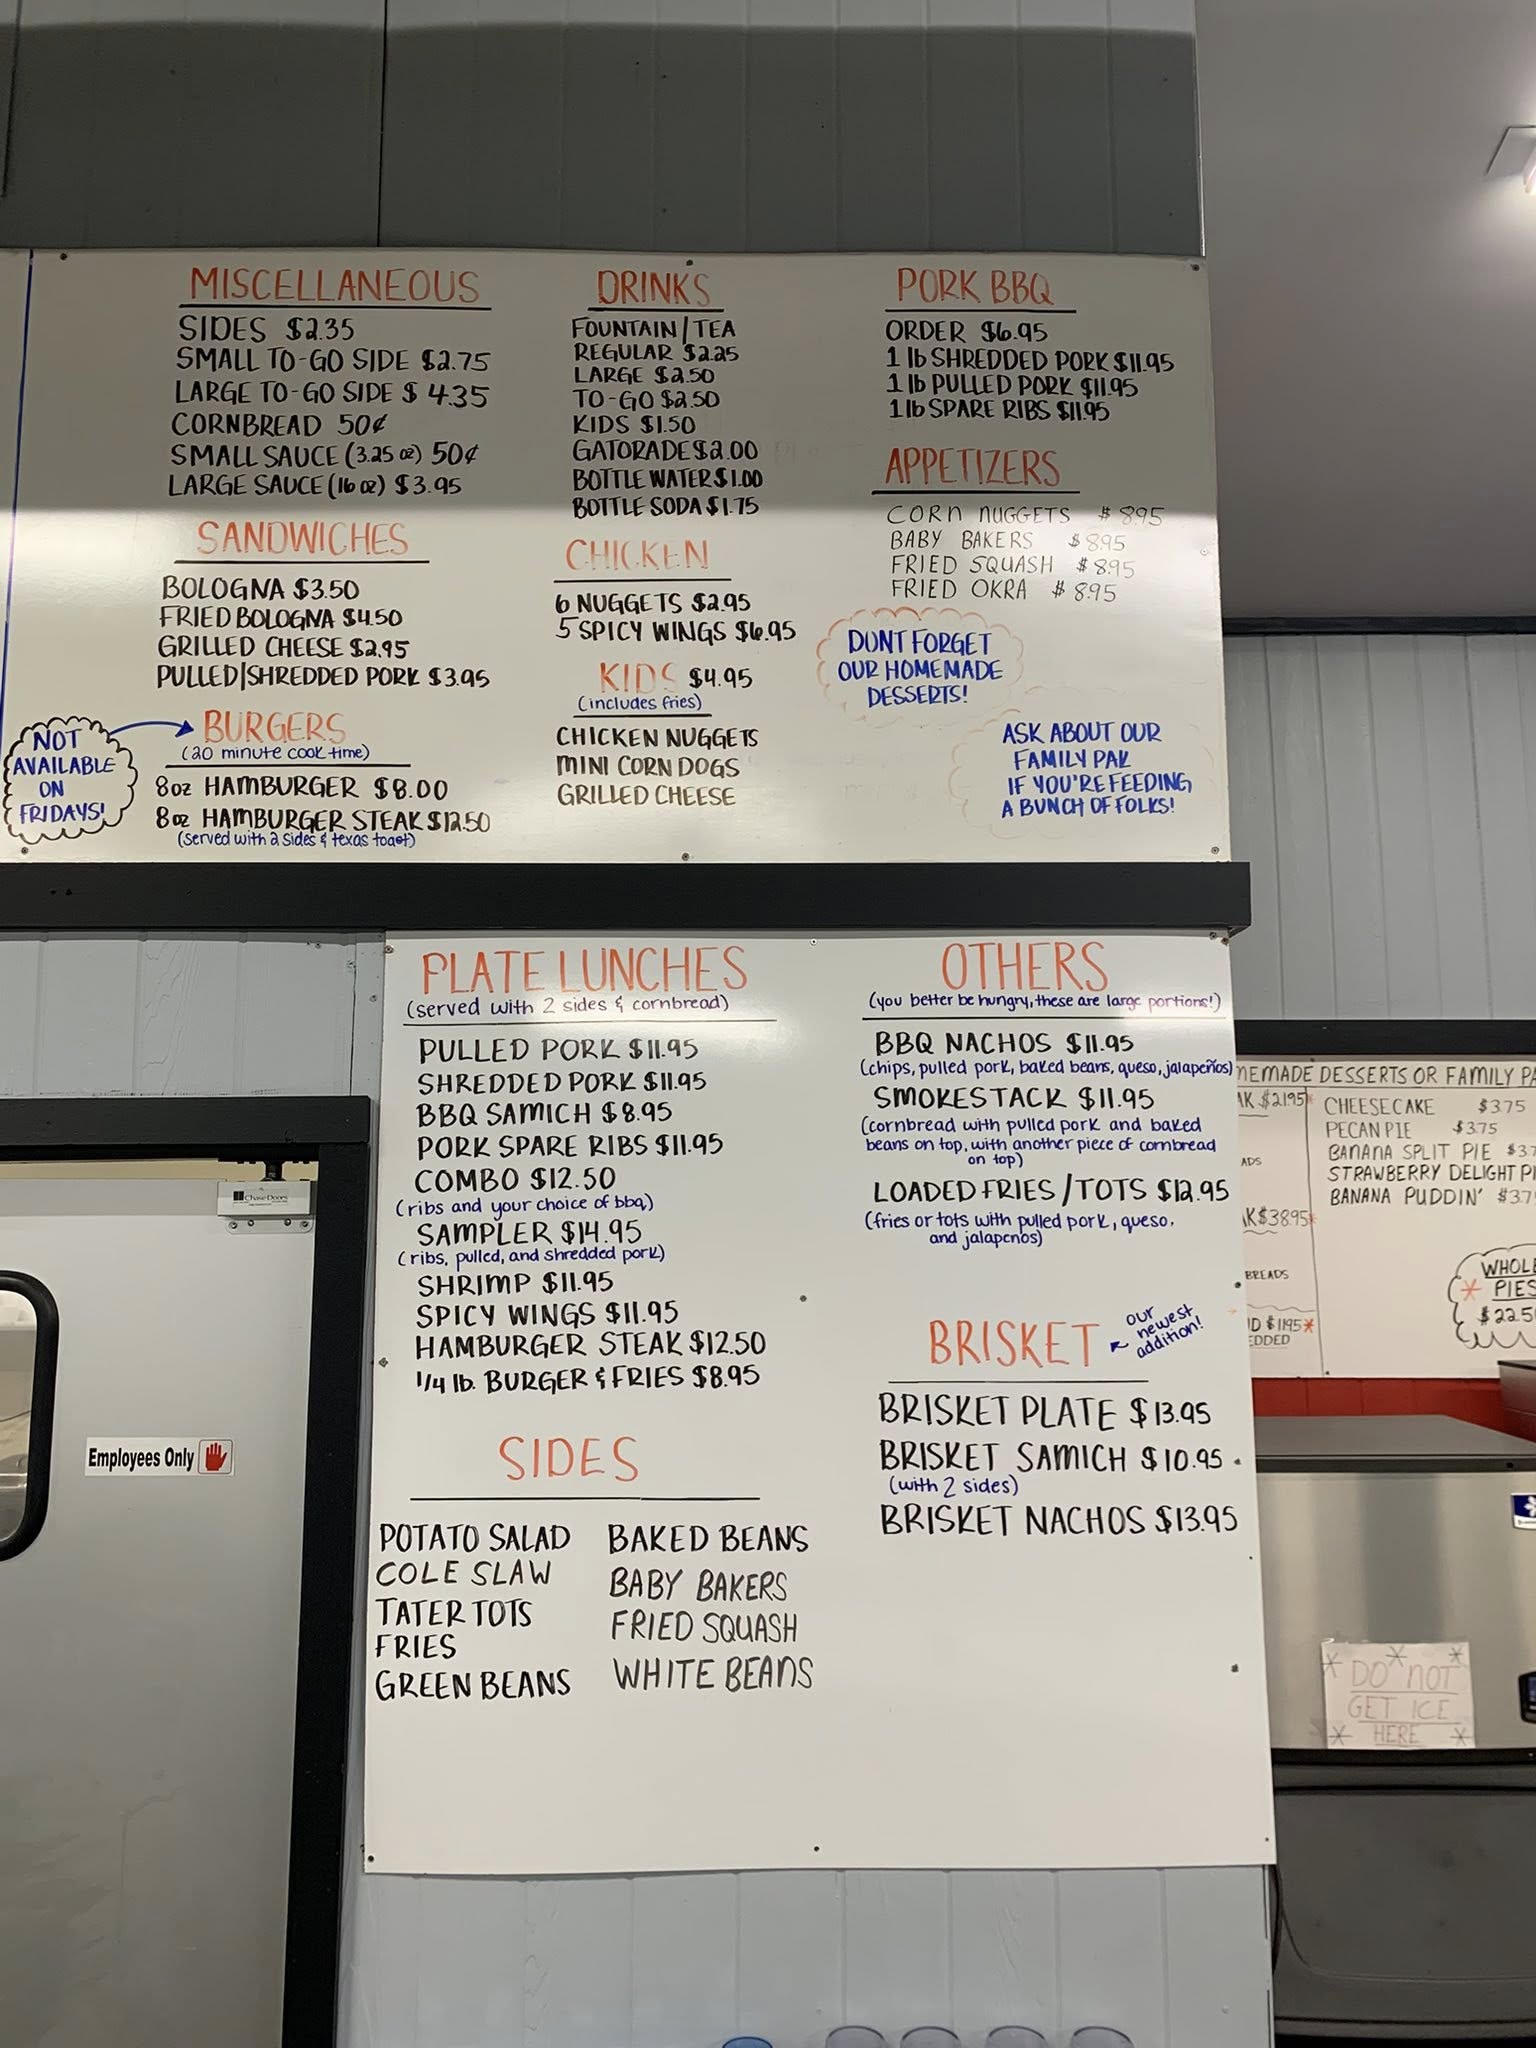 MISCELLANEOUS
SIDES $2.35
SMALL TO-GO SIDE $2.75
LARGE TO-GO SIDE $4.35
CORNBREAD 50¢
SMALL SAUCE (3.25 oz) 50¢
LARGE SAUCE (16 oz) $3.95
SANDWICHES
BOLOGNA $3.50
FRIED BOLOGNA $4.50
GRILLED CHEESE $2.95
PULLED/SHREDDED PORK $3.95
NOT
AVAILABLE
ON
FRIDAYS!
BURGERS
(20 minute cook time)
8oz HAMBURGER $8.00
8oz HAMBURGER STEAK $12.50
(served with 2 sides & texas toast)
DRINKS
FOUNTAIN/TEA
REGULAR $2.25
LARGE $2.50
TO-GO $2.50
KIDS $1.50
GATORADE $2.00
BOTTLE WATER $1.00
BOTTLE SODA $1.75
CHICKEN
6 NUGGETS $2.95
5 SPICY WINGS $6.95
KIDS $4.95
(includes fries)
CHICKEN NUGGETS
MINI CORN DOGS
GRILLED CHEESE
PORK BBQ
ORDER $6.95
1 lb SHREDDED PORK $11.95
1 lb PULLED PORK $11.95
1 lb SPARE RIBS $11.95
APPETIZERS
CORN NUGGETS $8.95
BABY BAKERS $8.95
FRIED SQUASH $8.95
FRIED OKRA $8.95
DUNT FORGET
OUR HOMEMADE
DESSERTS!
ASK ABOUT OUR
FAMILY PAK
IF YOU'RE FEEDING
A BUNCH OF FOLKS!
PLATE LUNCHES
(served with 2 sides & cornbread)
PULLED PORK $11.95
SHREDDED PORK $11.95
BBQ SAMICH $8.95
PORK SPARE RIBS $11.95
COMBO $12.50
(ribs and your choice of bbq)
SAMPLER $14.95
(ribs, pulled, and shredded pork)
SHRIMP $11.95
SPICY WINGS $11.95
HAMBURGER STEAK $12.50
1/4 lb. BURGER & FRIES $8.95
SIDES
POTATO SALAD
COLE SLAW
TATER TOTS
FRIES
GREEN BEANS
BAKED BEANS
BABY BAKERS
FRIED SQUASH
WHITE BEANS
OTHERS
(you better be hungry, these are large portions!)
BBQ NACHOS $11.95
(chips, pulled pork, baked beans, queso, jalapeños)
SMOKESTACK $11.95
(cornbread with pulled pork and baked
beans on top, with another piece of cornbread
on top)
LOADED FRIES/TOTS $12.95
(fries or tots with pulled pork, queso,
and jalapenos)
BRISKET
our
newest
addition!
BRISKET PLATE $13.95
BRISKET SAMICH $10.95
(with 2 sides)
BRISKET NACHOS $13.95
MEMADE DESSERTS OR FAMILY PA
AK $21.95*
ADS
AK $38.95*
BREADS
ID $11.95*
EDDED
CHEESECAKE $3.75
PECAN PIE $3.75
BANANA SPLIT PIE $3.7
STRAWBERRY DELIGHT PI
BANANA PUDDIN' $3.7
WHOLE
* PIES
$22.5
Chase Doors
Employees Only
DO NOT
GET ICE
HERE